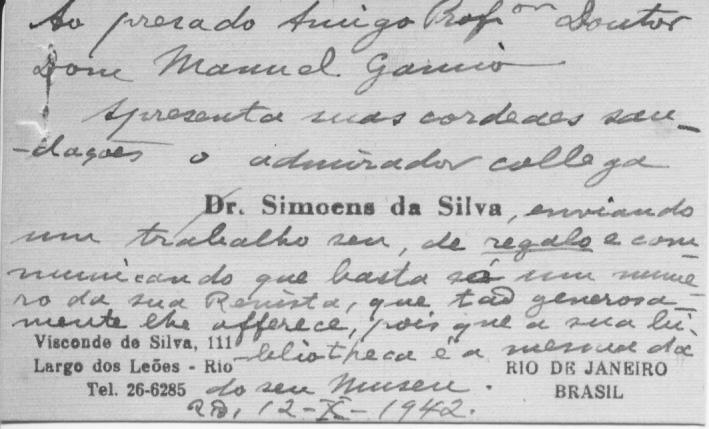 Ao presado Amigo Profor Doutor
Dom Manuel Gamio
Apresenta suas cordeaes sau-
-dações o admirador collega
Dr. Simoens da Silva, enviando
um trabalho seu, de regalo e com-
municando que basta só um nume-
ro da sua Revista, que tão generosa-
mente lhe offerece, pois que a sua bi-
Visconde de Silva, 111
-bliotheca é a mesma da
Largo dos Leões - Rio
RIO DE JANEIRO
Tel. 26-6285
do seu Museu.
BRASIL
12-X-1942.